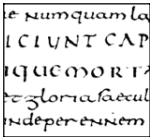 e numquam la
ICIUNT CAP
IQUEMORT
et gloria saecul
indeperennem